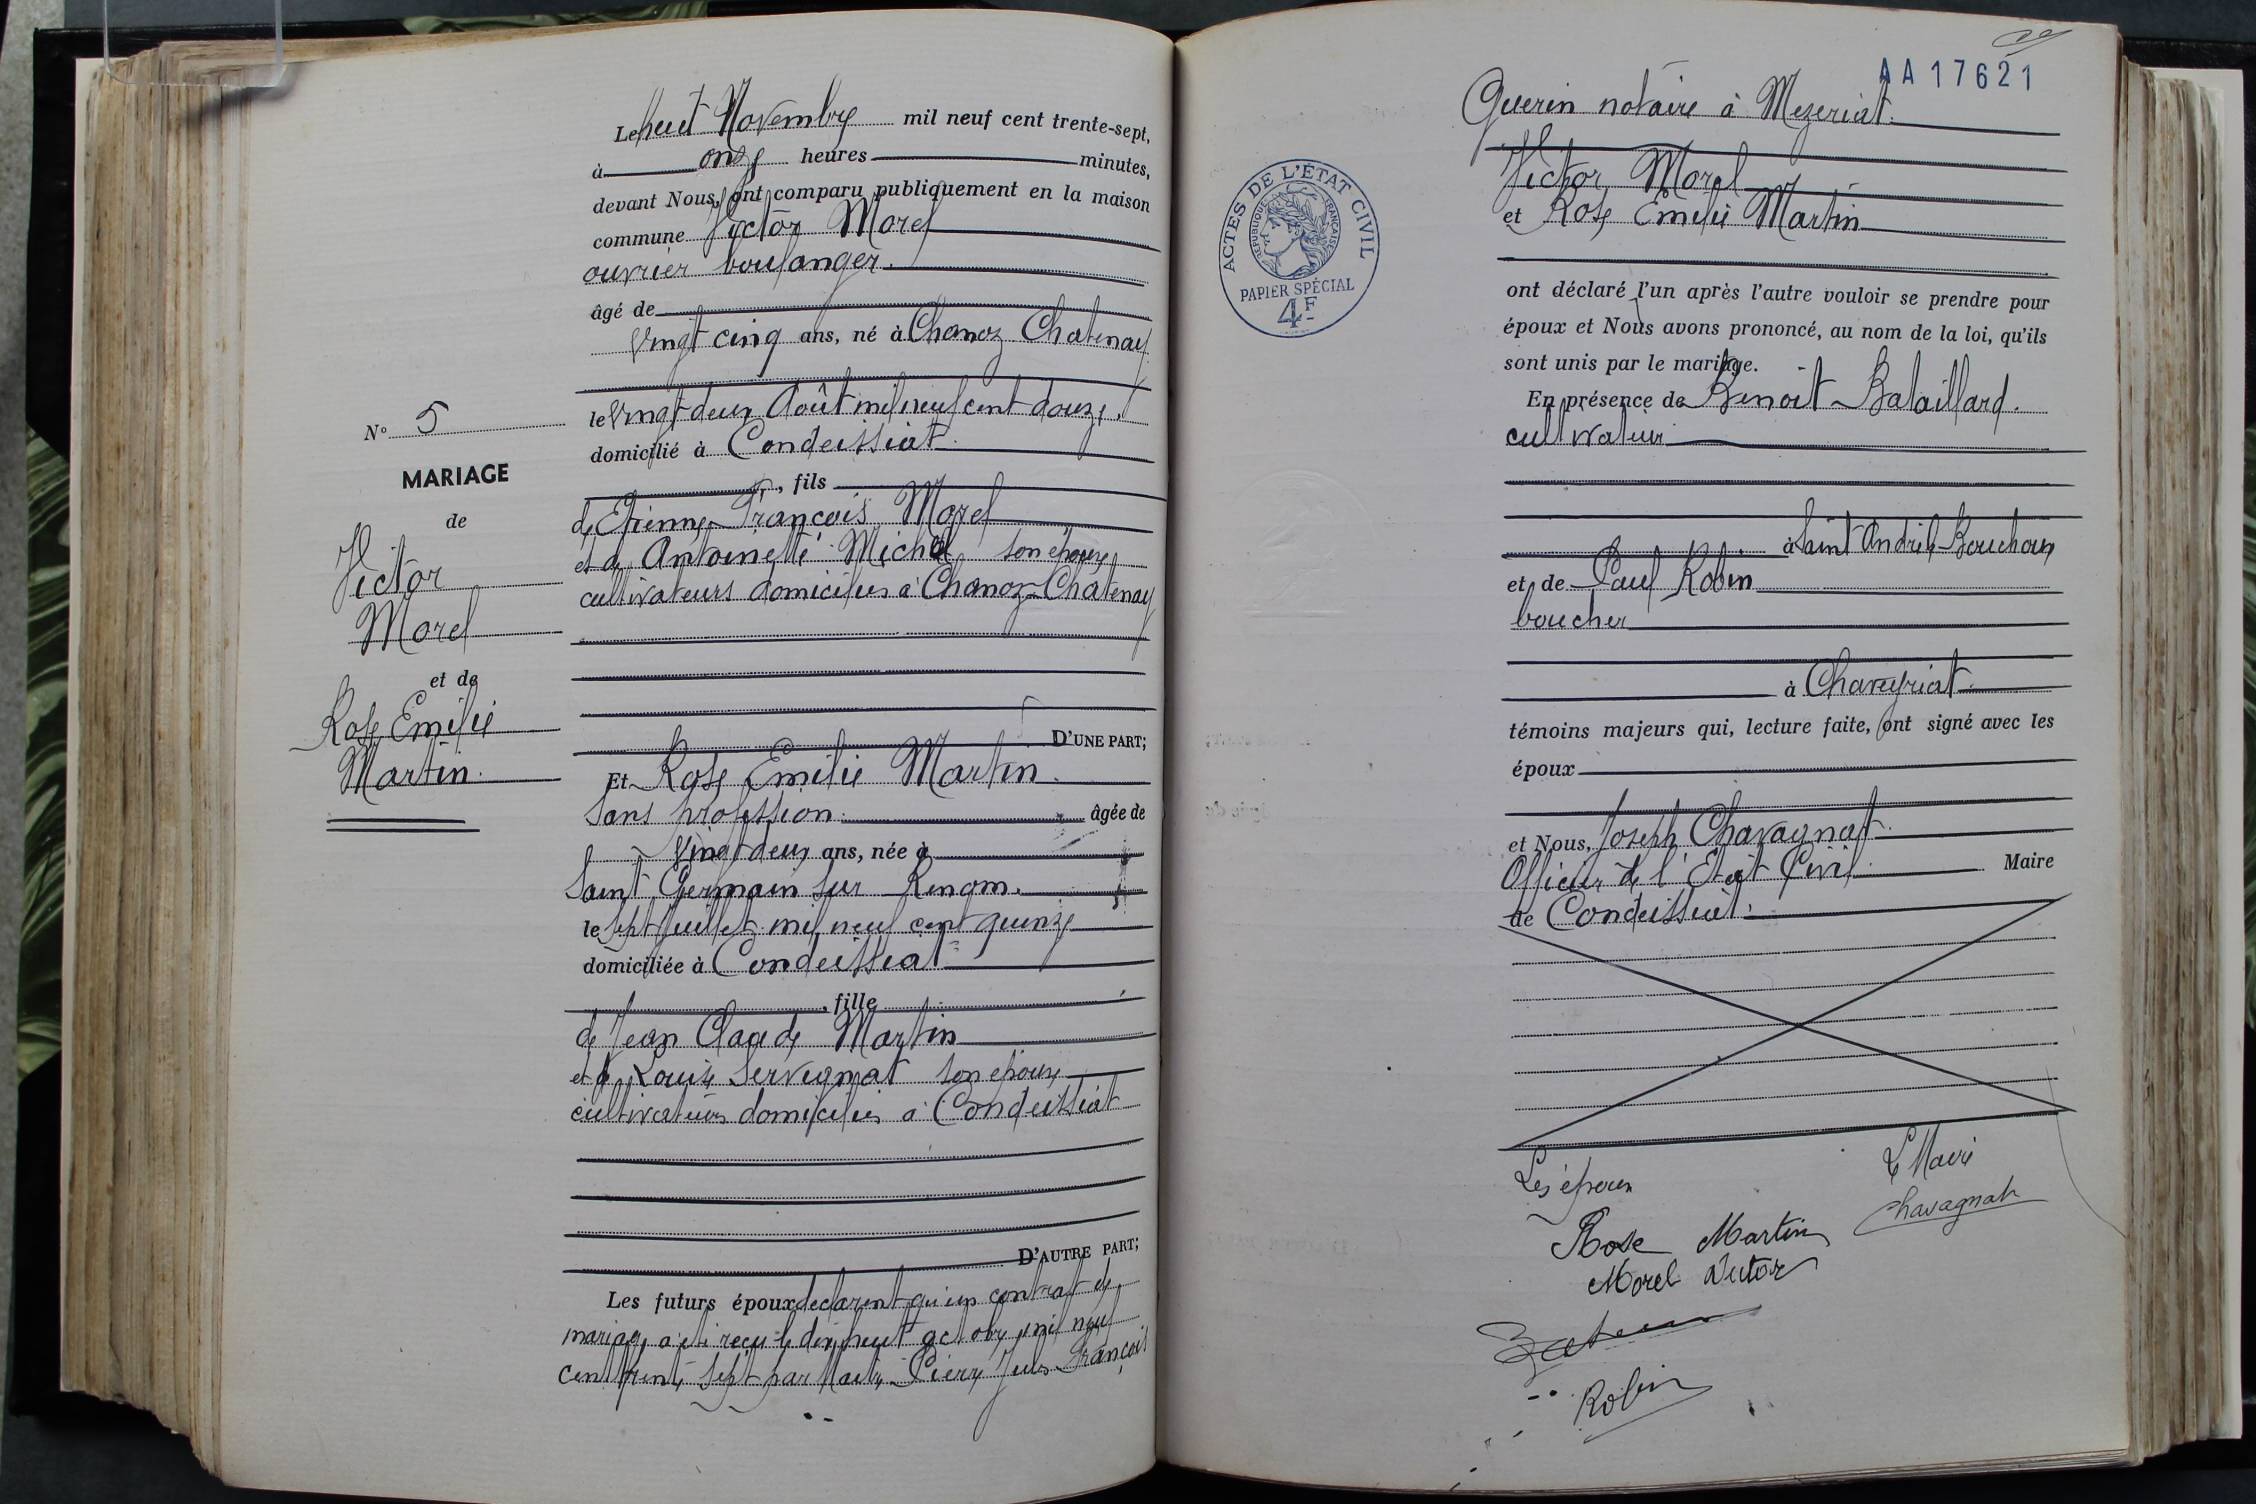 Le huit Novembre mil neuf cent trente-sept,
à onze heures minutes,
devant Nous, ont comparu publiquement en la maison
commune Victor Morel
ouvrier boulanger.
âgé de
vingt cinq ans, né à Chanoz Chatenay
le vingt deux Août mil neuf cent douze,
domicilié à Condeissiat
, fils
de Etienne François Morel
et de Antoinette Michel son épouse
cultivateurs domiciliés à Chanoz-Chatenay
D'UNE PART;
Et Rose Emilie Martin.
sans profession. âgée de
vingt deux ans, née à
Saint Germain sur Renom.
le sept Juillet mil neuf cent quinze
domiciliée à Condeissiat
, fille
de Jean Claude Martin
et de Louise Servignat son épouse
cultivateurs domiciliés à Condeissiat
D'AUTRE PART;
Les futurs époux déclarent qu'un contrat de
mariage a été reçu le dix huit octobre mil neuf
cent trente sept par Maître Pierre Jules François
N° 5
MARIAGE
de
Victor
Morel
et de
Rose Emilie
Martin.
AA17621
Guerin notaire à Mezeriat.
Victor Morel
et Rose Emilie Martin
ont déclaré l'un après l'autre vouloir se prendre pour
époux et Nous avons prononcé, au nom de la loi, qu'ils
sont unis par le mariage.
En présence de Benoit Bataillard.
cultivateur
à Saint André-le-Bouchoux
et de Paul Robin
boucher
à Chaveyriat
témoins majeurs qui, lecture faite, ont signé avec les
époux
et Nous, Joseph Chavagnat
Officier de l'Etat Civil Maire
de Condeissiat.
Les époux
Le Maire
Chavagnat
Rose Martin
Morel Victor
Robin
ACTES DE L'ÉTAT CIVIL
RÉPUBLIQUE FRANÇAISE
PAPIER SPÉCIAL
4F